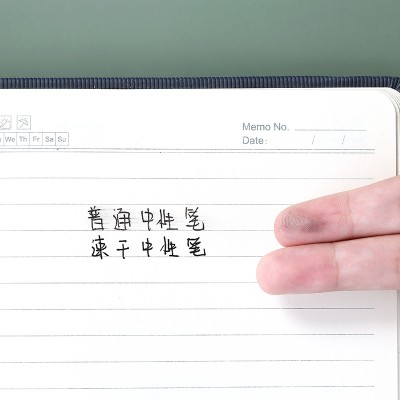 Memo No.
Date: / /
We Th Fr Sa Su
普通中性笔
速干中性笔